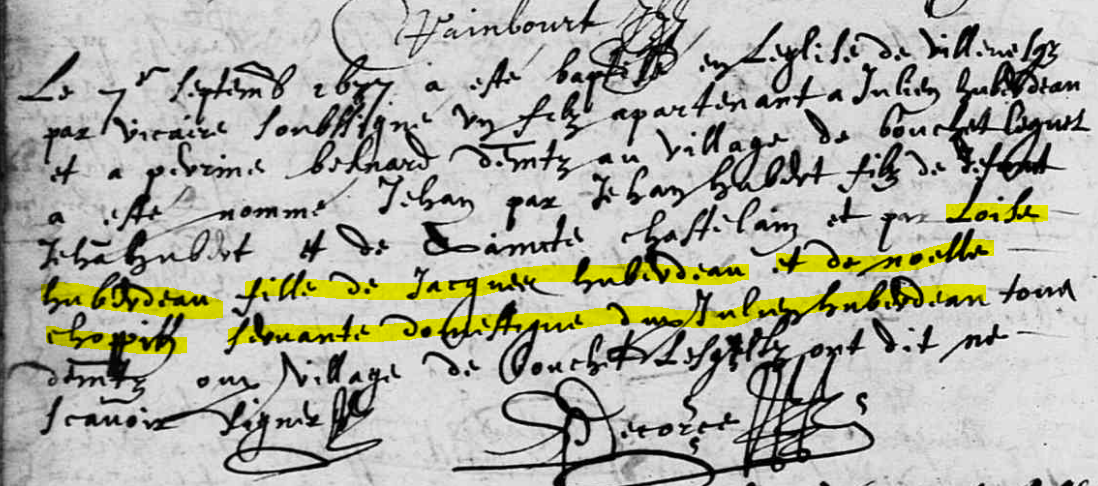 Vainbourt
Le 7e septemb 1677 a esté baptisé en Leglise de villene
par vicaire soubssigné un filz apartenant a Julien huberdeau
et a perrine besnard demtz au village de bouchet
a esté nommé Jehan par Jehan hubert filz de defunt
Jehan hubert et de chastelain et par Loise
huberdeau fille de Jacques huberdeau et de noelle
choppin servante domestique dud Julien huberdeau tous
demtz aux village de bouchet Lesqeltz ont dit ne
scavoir signer
Decorce